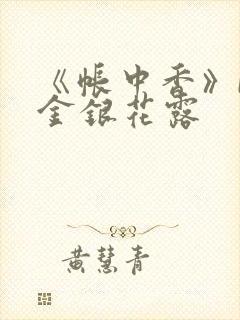 《帐中香》
金银花露
黄慧青